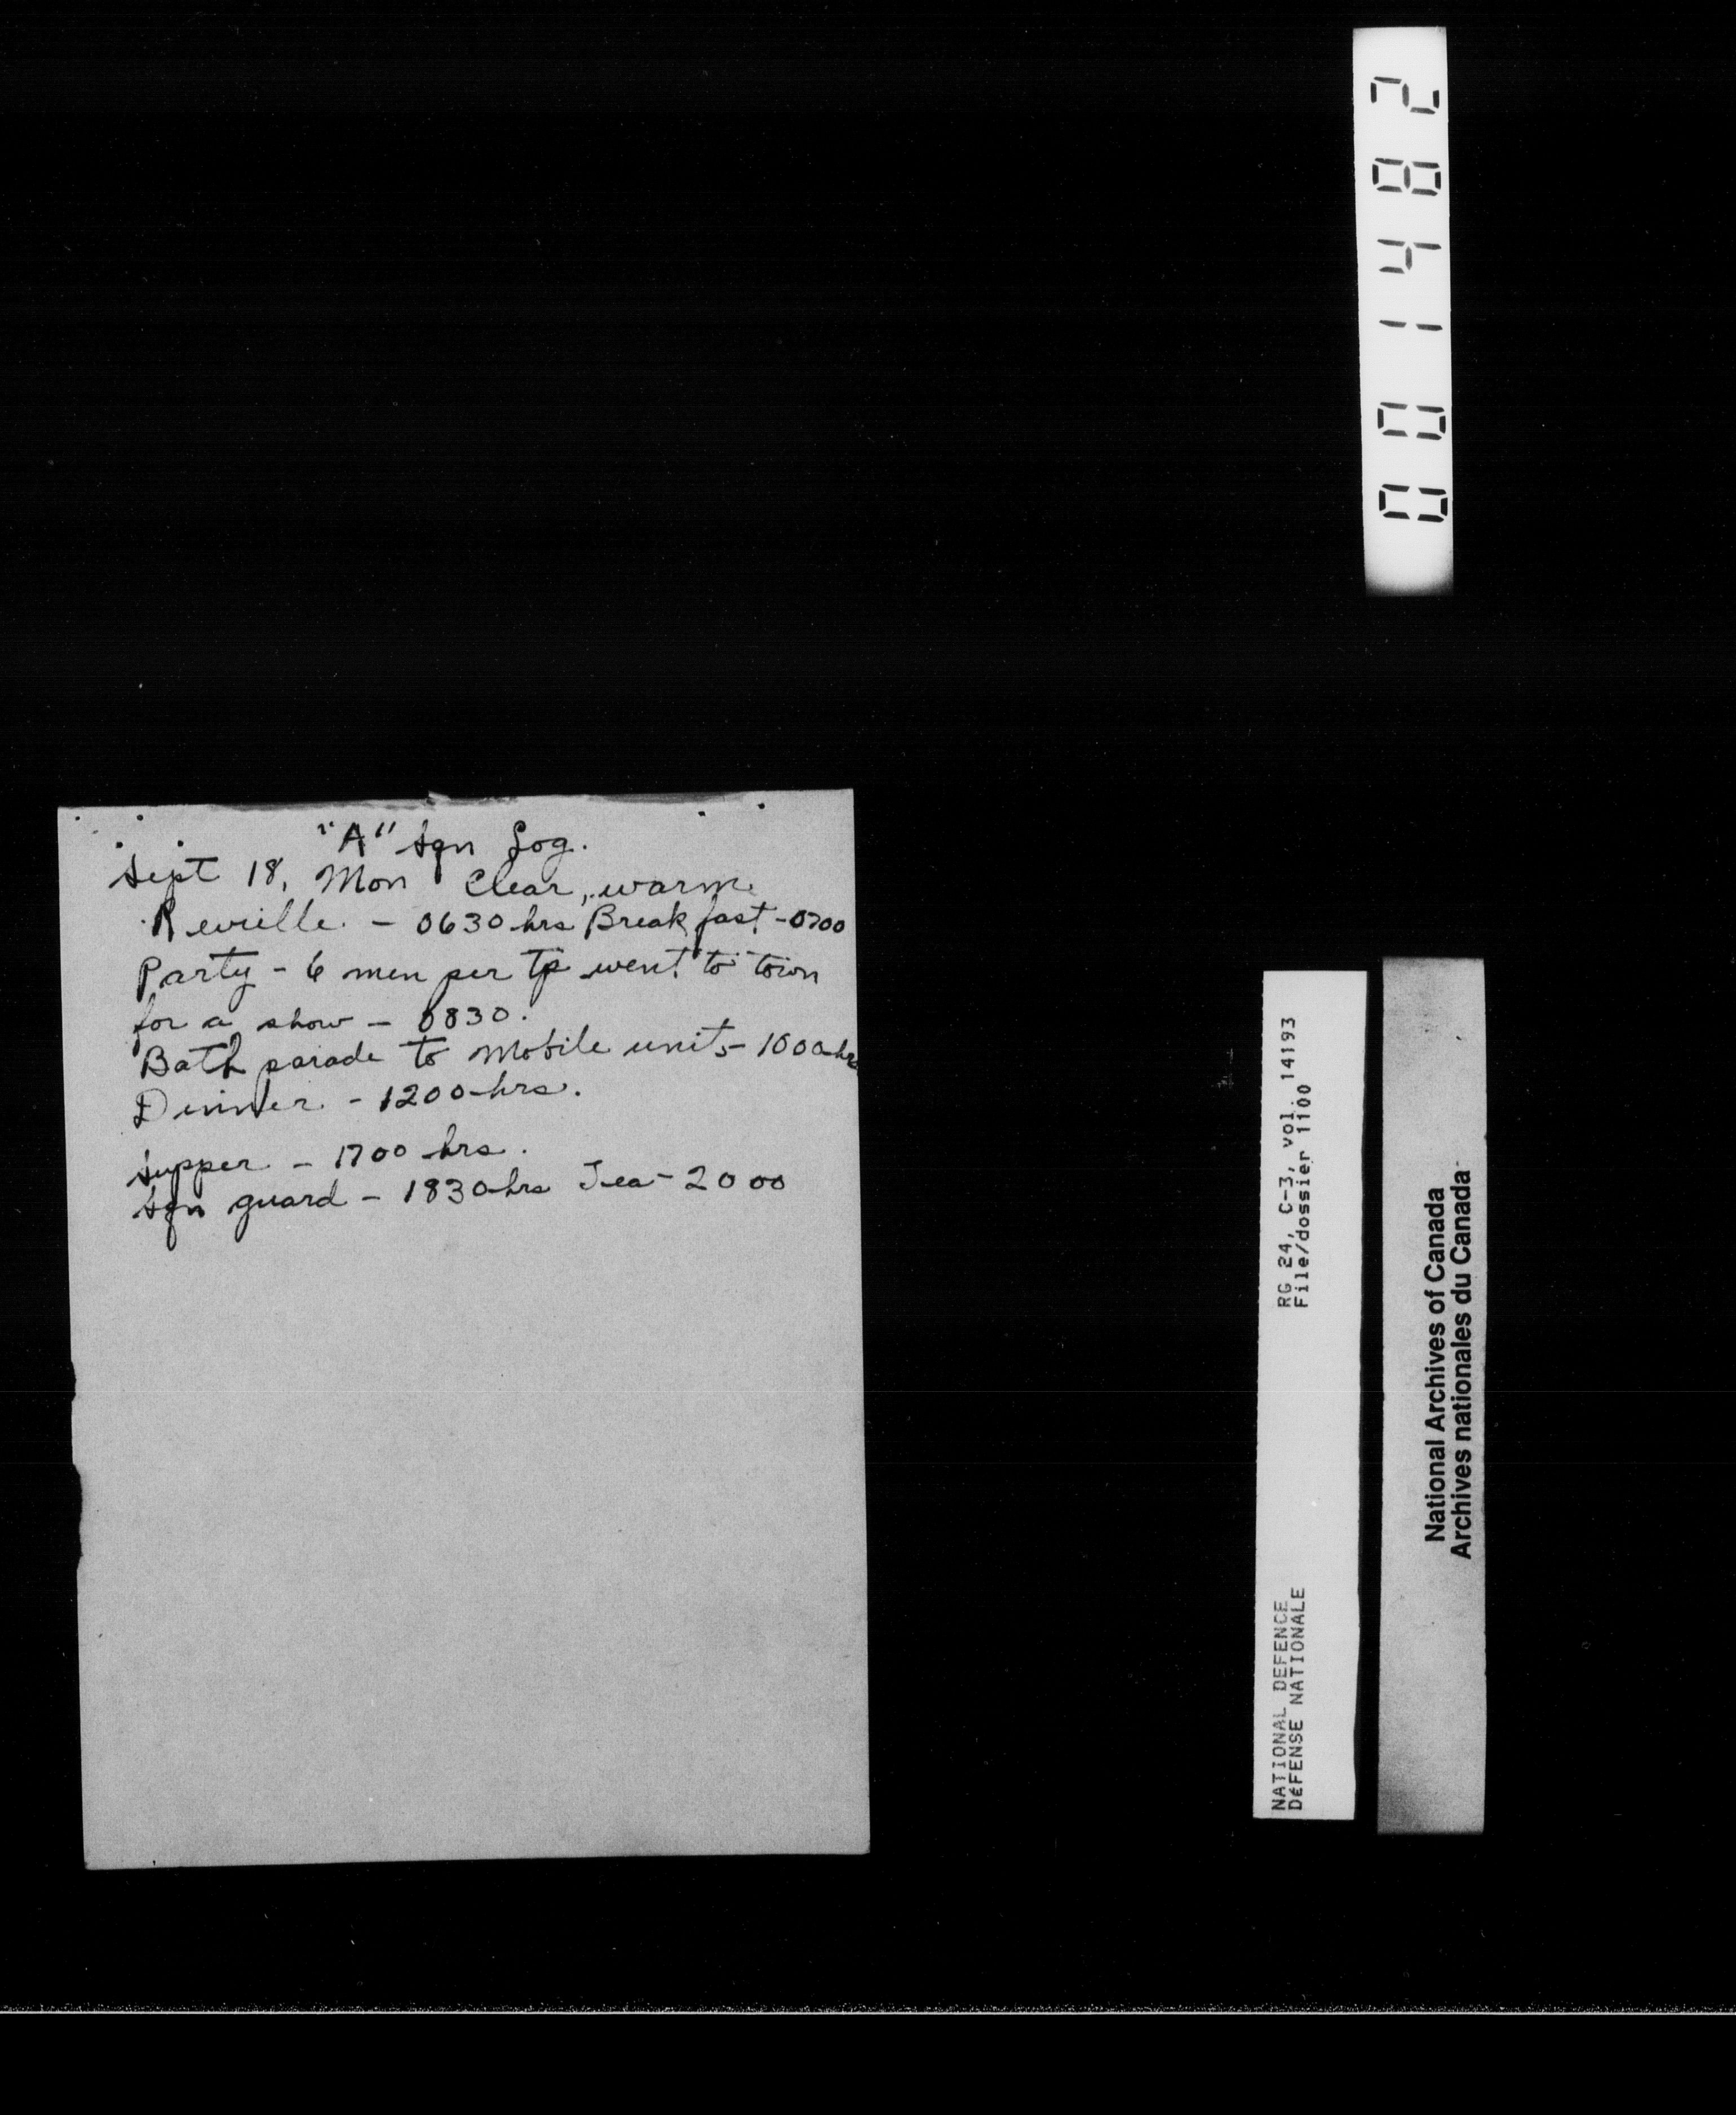 "A" Sqn Log.
Sept 18, Mon Clear, warm
Reville - 0630 hrs Breakfast - 0700
Party - 6 men per tp went to town
for a show - 0830.
Bath parade to Mobile units - 1000 hrs
Dinner - 1200 hrs.
Supper - 1700 hrs.
Sqn guard - 1830 hrs Tea - 2000
001482
RG 24, C-3, vol. 14193
File/dossier 1100
NATIONAL DEFENCE
DéFENSE NATIONALE
National Archives of Canada
Archives nationales du Canada